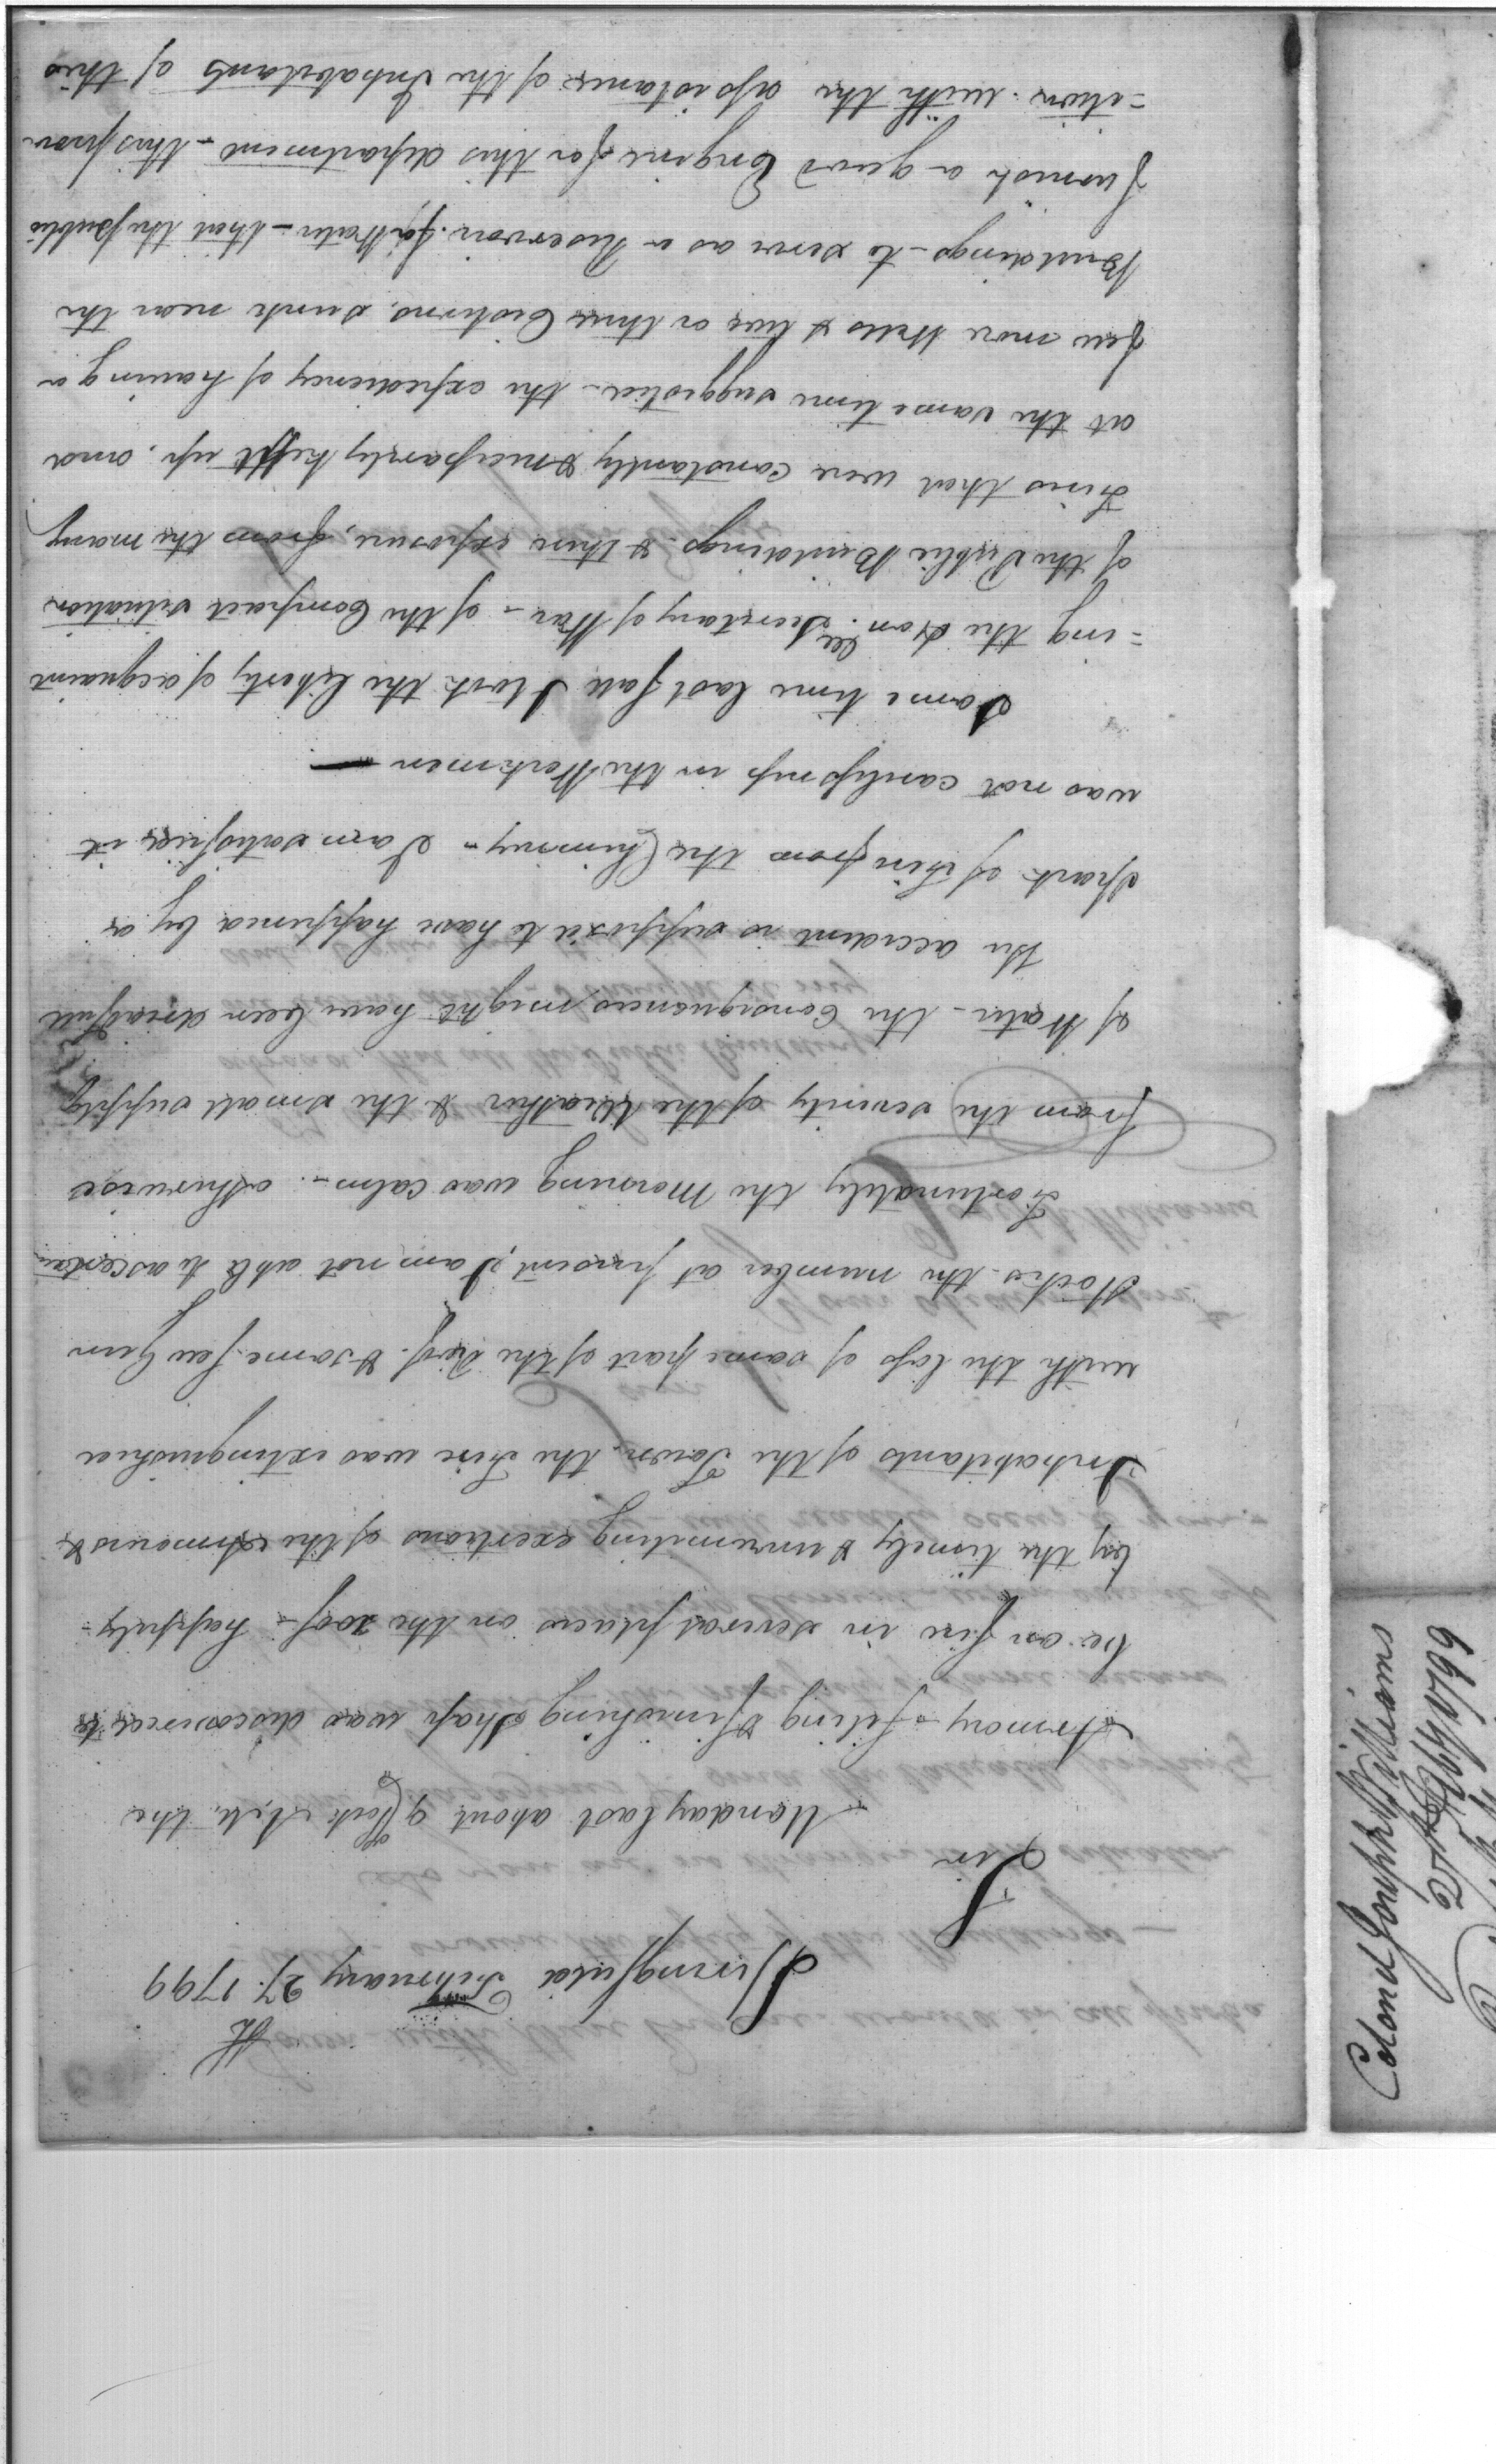 Springfield February 27th 1799
Sir
Monday last about 9 oClock A.M. the
Armory Filing & Finishing Shop was discovered to
be on fire in several places on the roof - happily -
by the timely & unremiting exertions of the Armourers &
Inhabitants of the Town, the Fire was extinguished
with the loss of some part of the Roof. & some few Gun
Stocks - the number at present, I am not able to ascertain
Fortunately the Morning was calm - otherwise
from the severity of the Weather & the small supply
of Water - the Consequences might have been dreadfull
The accident is supposed to have happened by a
Spark of Fire from the Chimney - I am satisfied it
was not carelessness in the Workmen —
Some time last fall I took the liberty of acquaint
=ing the Honble Secretary of War - of the Compact situation
of the Public Buildings - & their exposure, from the many
Fires that were constantly & necessarily kept up, and
at the same time suggested - the expediency of having a
few more Wells & two or three Cisterns, sunk near the
Buildings - to serve as a Reservoir for Water - that the public
furnish a good Engine for this department - this provi
=tion - with the assistance of the Inhabitants of this
Colonel Joseph Williams
27th Feby 1799